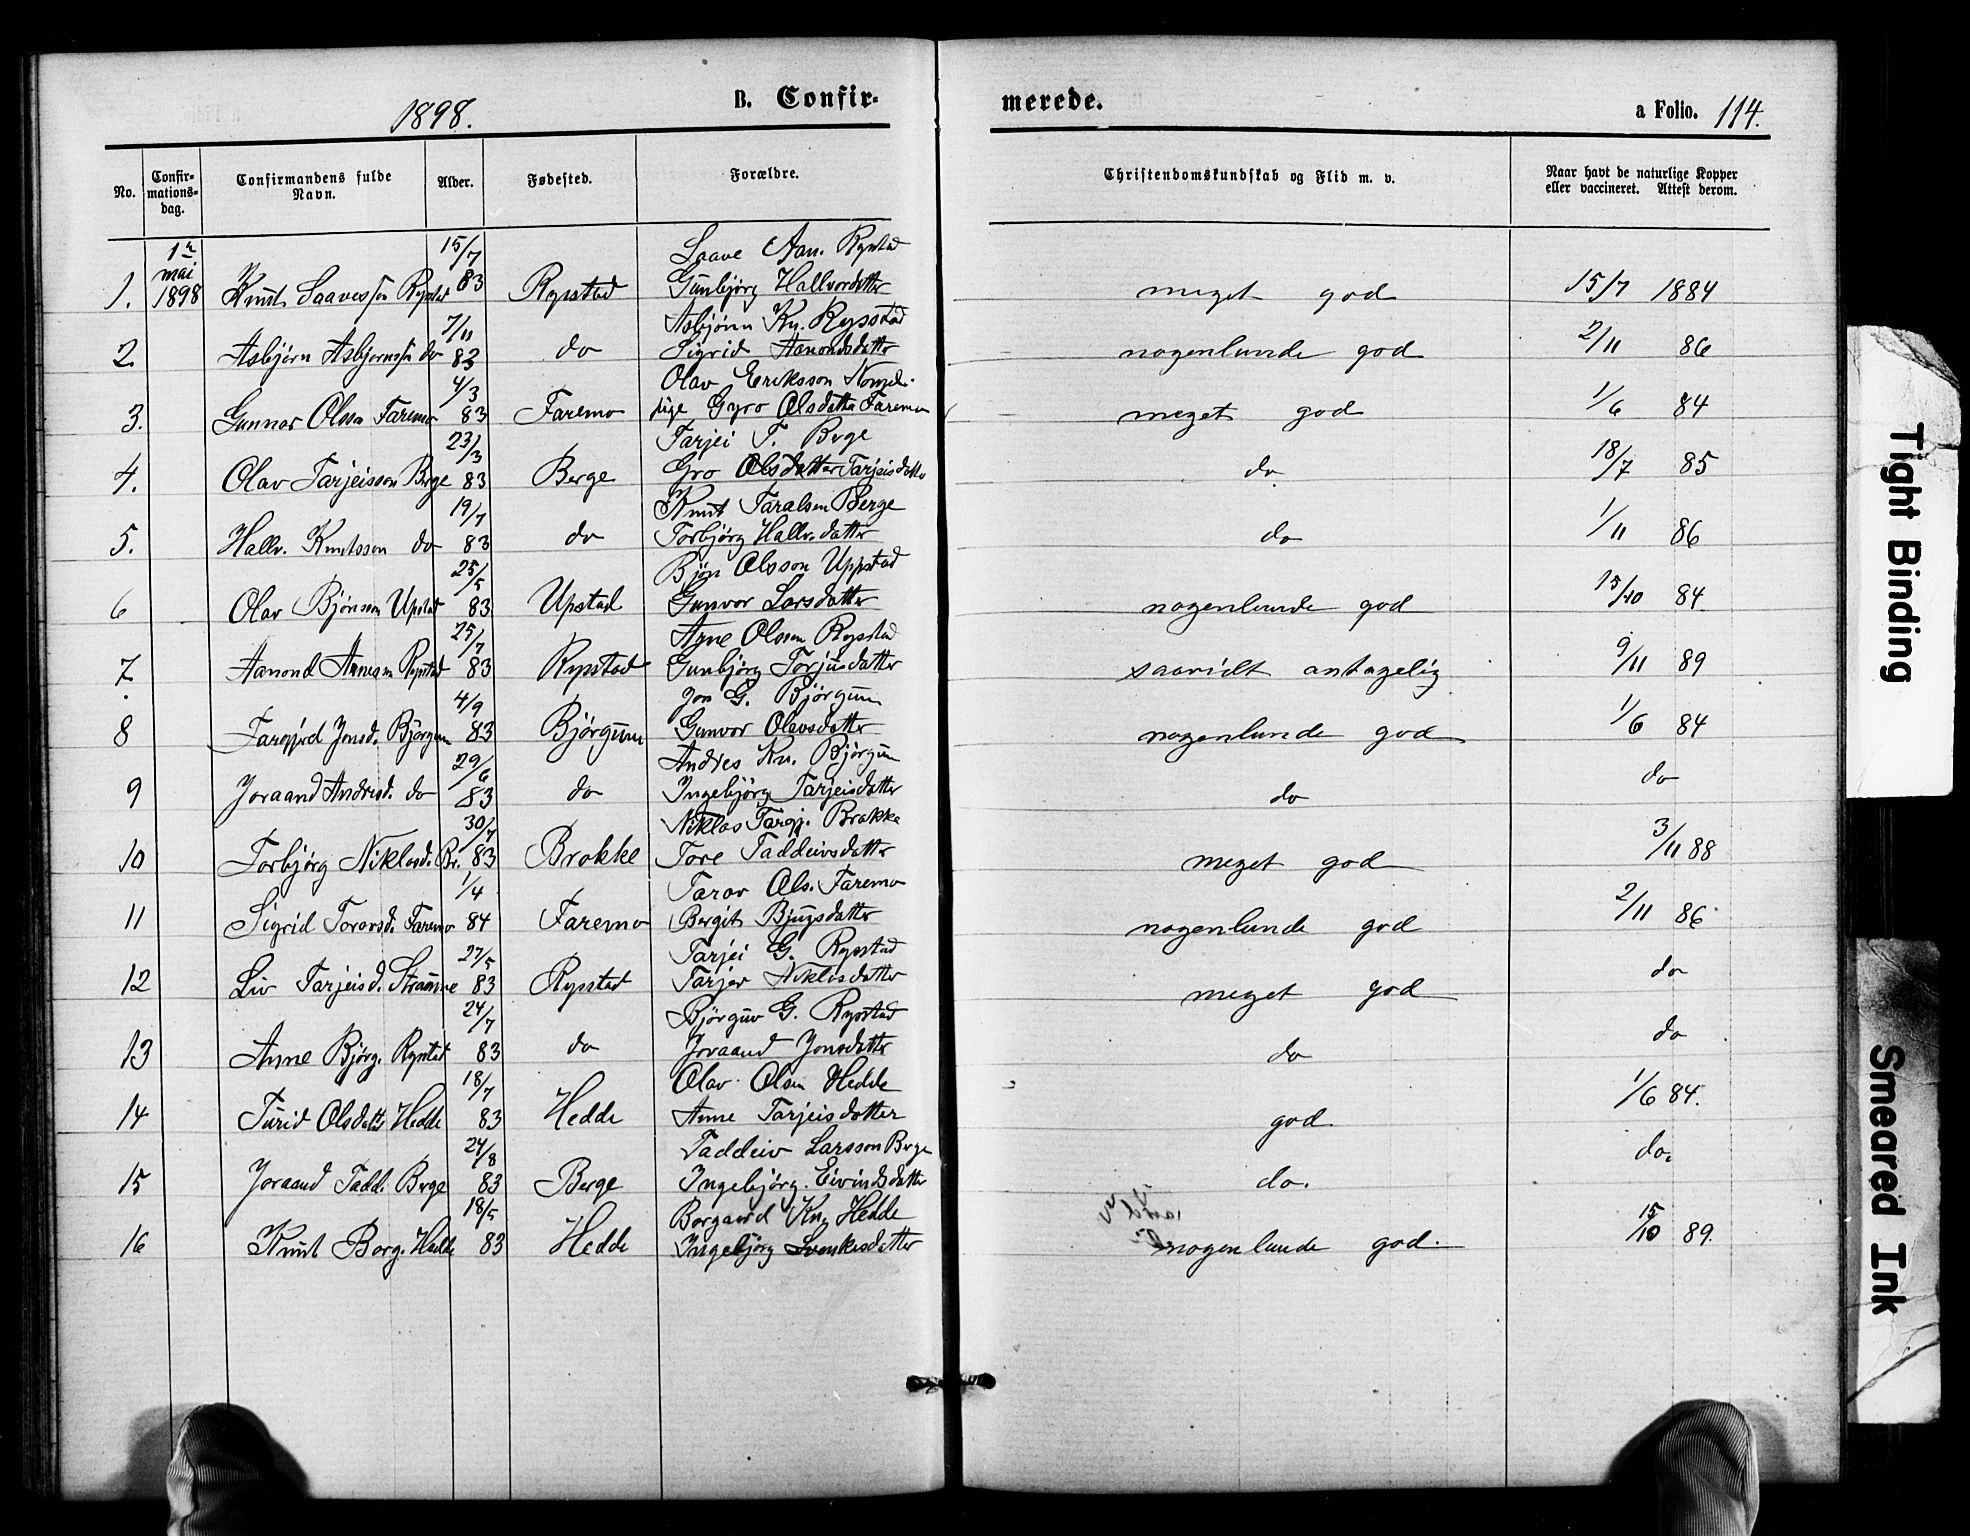 1898.
B. Confir-
merede.
a Folio. 114.
No.
Confir-
mations-
dag.
Confirmandens fulde
Navn.
Alder.
Fødested.
Forældre.
Christendomskundskab og Flid m. v.
Naar havt de naturlige Kopper
eller vaccineret. Attest derom.
1ste mai 15/7 Saave Aan. Rysstad
1. 1898 Knut Saavesson Rysstad 83 Rysstad Gunbjörg Hallvordatter meget god 15/7 1884
7/11 Asbjörn Kn. Rysstad
2. Asbjörn Asbjornssn do 83 do Sigrid Aanondsdatter nogenlunde god 2/11 86
4/3 Olav Eriksson Nomeli
3. Gunnar Olsson Faremo 83 Faremo pige Gyro Olsdatter Faremo meget god 1/6 84
23/3 Tarjei T. Berge
4. Olav Tarjeisson Berge 83 Berge Gro Olsdatter Tarjeisdatter do 18/7 85
19/7 Knut Taralsen Berge
5. Hallv. Knutsson do 83 do Torbjörg Hallv.datter do 1/11 86
25/5 Bjön Olsson Uppstad
6 Olav Bjönsson Upstad 83 Upstad Gunvor Larsdatter nogenlunde god 15/10 84
25/7 Arne Olsson Rysstad
7. Aanond Arnessn Rysstad 83 Rysstad Gunbjörg Torjusdatter saavidt antagelig 9/11 89
4/9 Jon G. Björgum
8 Targjerd Jonsd. Björgum 83 Björgum Gunvor Olavsdatter nogenlunde god 1/6 84
29/6 Andres Kn. Björgum
9 Joraand Andresd. do 83 do Ingebjörg Tarjeisdatter do do
30/7 Niklas Targj. Brokke
10 Torbjörg Niklasd. Br. 83 Brokke Tore Taddeivsdatter meget god 3/11 88
1/4 Tarov Ols. Faremo
11 Sigrid Torovsd. Faremo 84 Faremo Bergit Bjugsdatter nogenlunde god 2/11 86
27/5 Tarjei G. Rysstad
12 Liv Tarjeisd. Straume 83 Rysstad Tarjer Niklosdatter meget god do
24/7 Björguv G. Rysstad
13 Anne Bjørg. Rysstad 83 do Joraand Jonsdatter do do
18/7 Olav Olsen Hedde
14 Turid Olsdatter Hedde 83 Hedde Anne Tarjeisdatter god. 1/6 84.
24/8 Taddeiv Larsson Berge
15 Joraand Tadd. Berge 83 Berge Ingebjörg Eivindsdatter do. do.
18/5 Borgaard Kn. Hedde
16 Knut Borg. Hedde 83 Hedde Ingebjörg Svenkesdatter nogenlunde god. 15/10 89.
Tight Binding
Smeared Ink